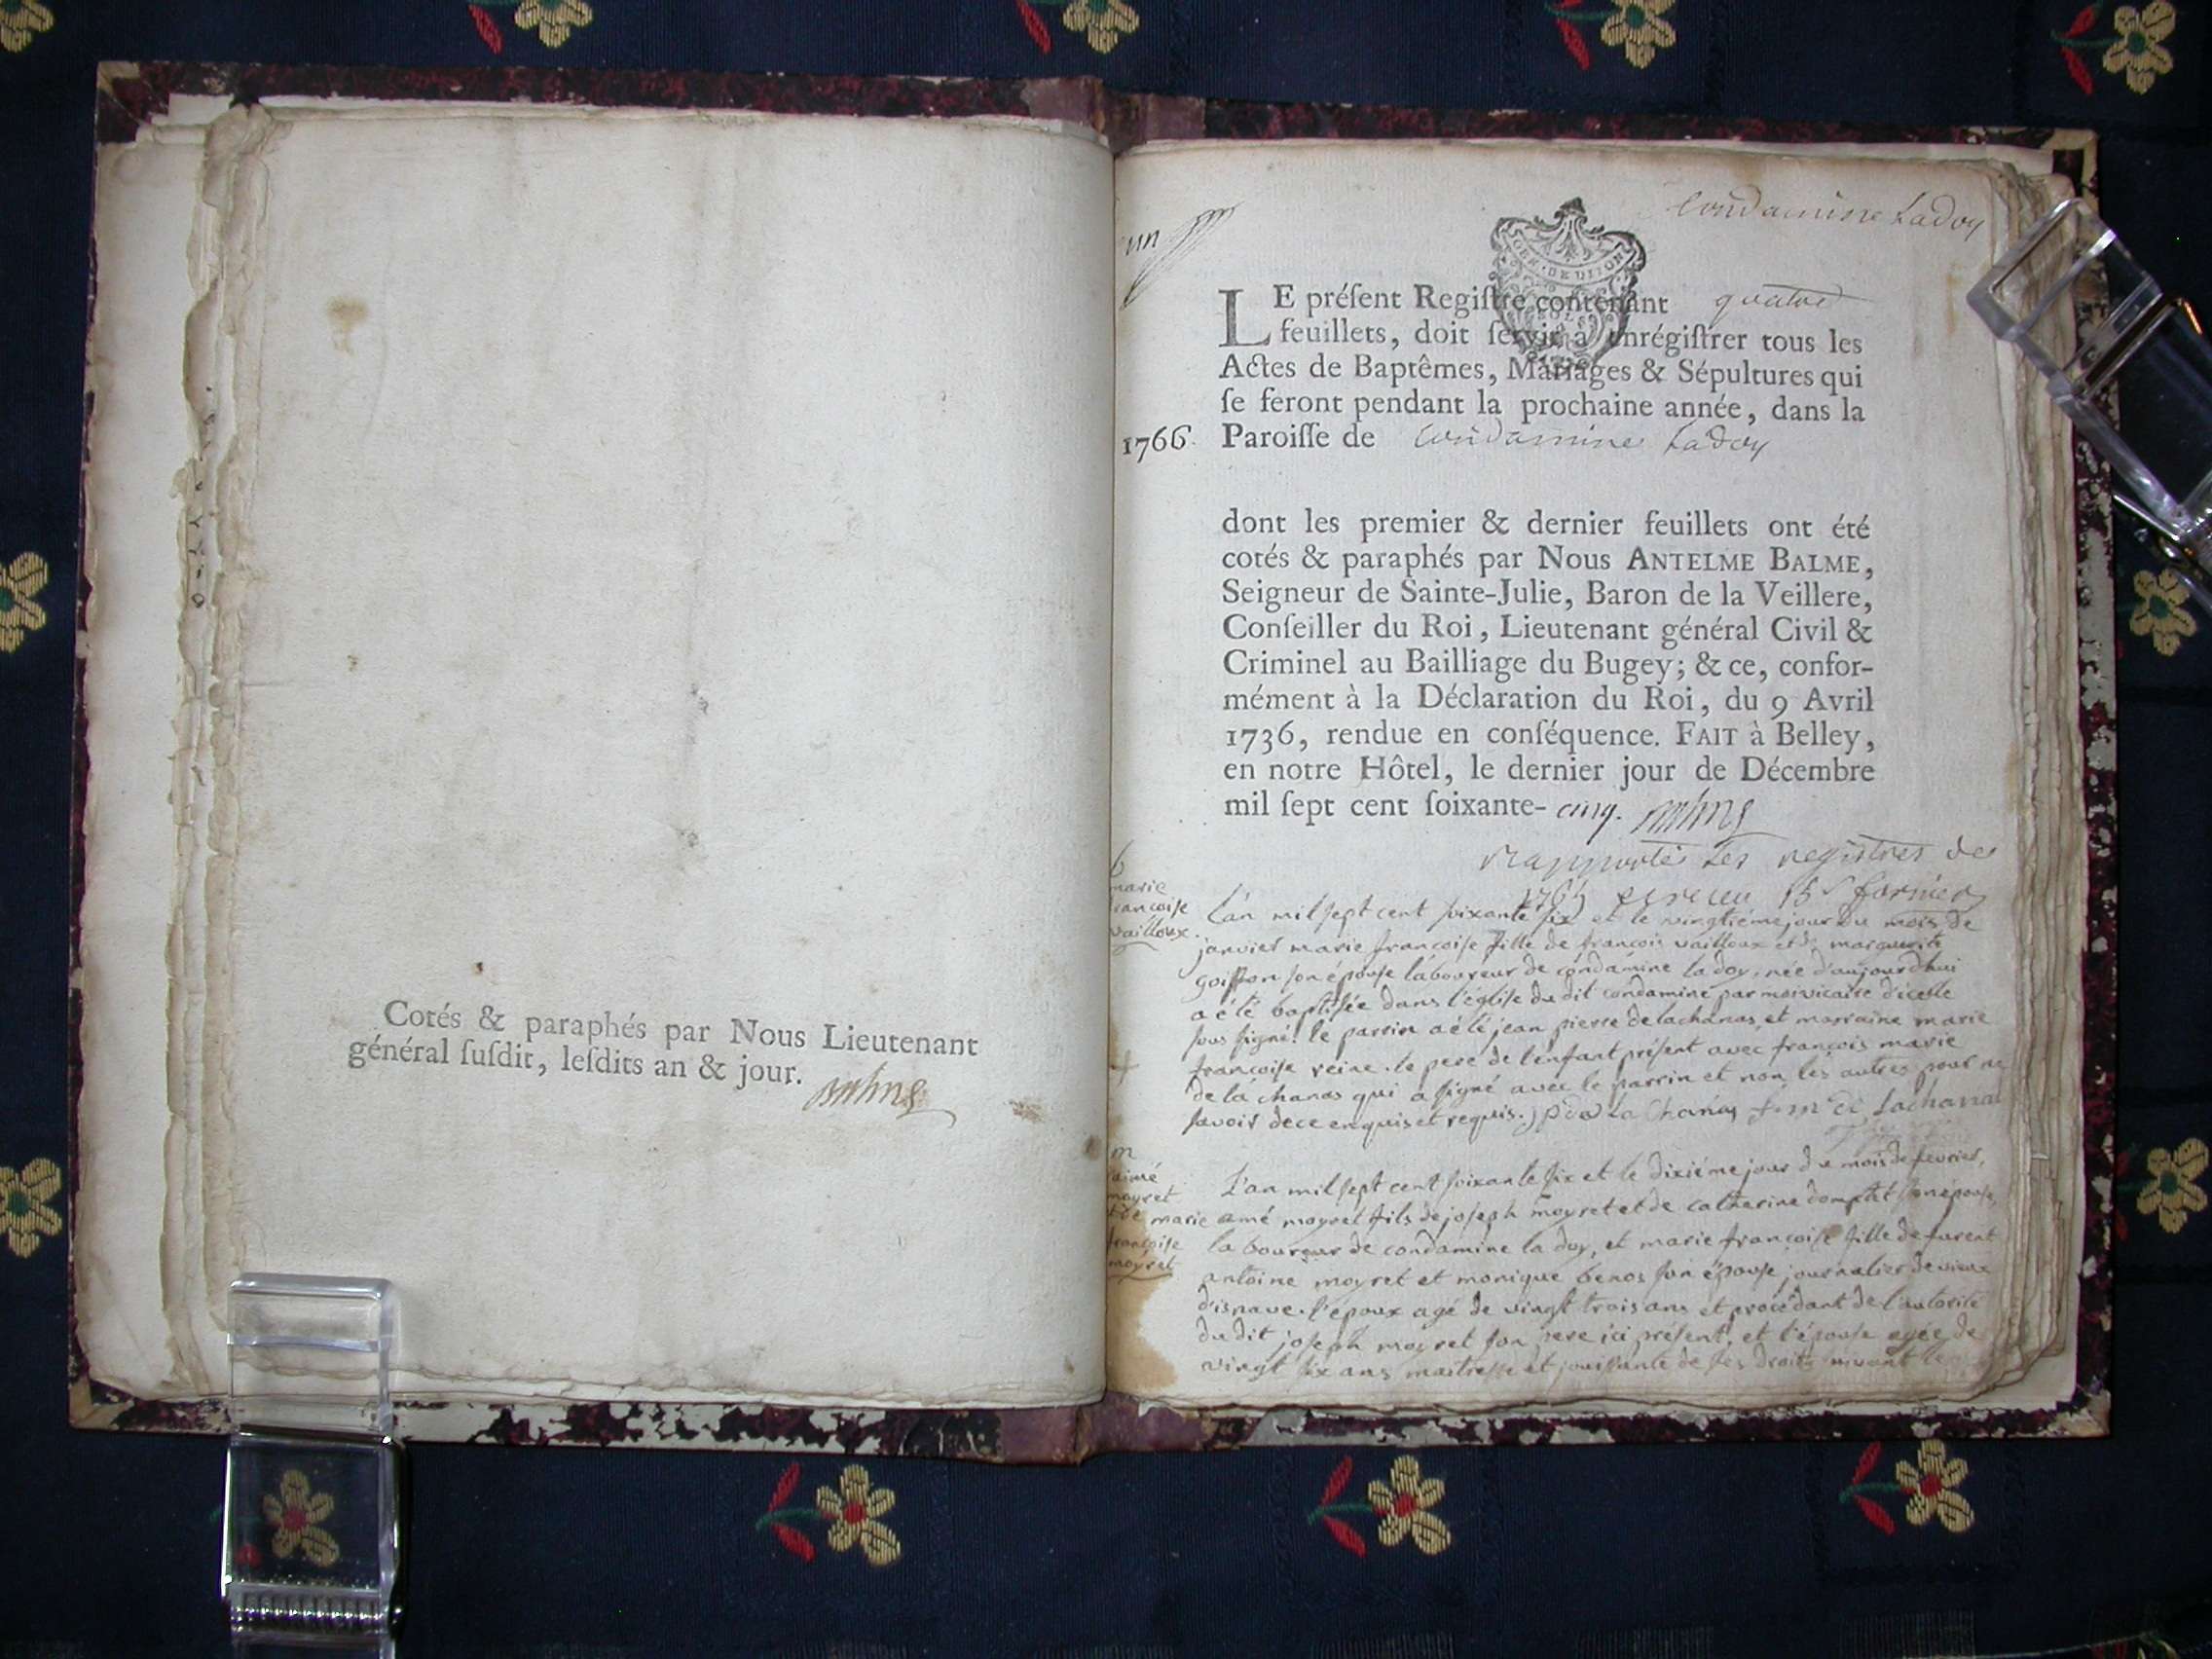 Cotés & paraphés par Nous Lieutenant
général ſuſdit, leſdits an & jour.
un
Condamine Ladoy
GEN. DE DIJON
LE préſent Regiſtre contenant quatre
feuillets, doit ſervir à enrégiſtrer tous les
Actes de Baptêmes, Mariages & Sépultures qui
ſe feront pendant la prochaine année, dans la
1766. Paroiſſe de Condamine Ladoy
dont les premier & dernier feuillets ont été
cotés & paraphés par Nous ANTELME BALME,
Seigneur de Sainte-Julie, Baron de la Veillere,
Conſeiller du Roi, Lieutenant général Civil &
Criminel au Bailliage du Bugey; & ce, confor-
mément à la Déclaration du Roi, du 9 Avril
1736, rendue en conſéquence. FAIT à Belley,
en notre Hôtel, le dernier jour de Décembre
mil ſept cent ſoixante- cinq.
rapporté les registres de
1765
b
marie
francoiſe
vailloux.
L'an mil ſept cent ſoixante ſix et le vingtiéme jour du mois de
janvier marie francoiſe fille de francois vailloux et de marguerite
goiffon ſon épouſe laboureur de condamine la doy, née d'aujourdhui
a été baptiſée dans l'égliſe du dit condamine par moi vicaire d'icelle
ſous ſigné. le parrin a été jean pierre delachanas, et marraine marie
francoiſe reine. le pere de l'enfant préſent avec francois marie
de la chanas qui a ſigné avec le parrin et non les autres pour ne
ſavoir de ce enquis et requis. j p de La Chanas f. m de Lachanas
m
aimé
moyret
et de marie
françoiſe
moyret
L'an mil ſept cent ſoixante ſix et le dixiéme jour du mois de fevrier,
amé moyret fils de joſeph moyret et de catherine domptet ſon épouſe,
laboureur de condamine la doy, et marie françoiſe fille de furent
antoine moyret et monique benos ſon épouſe journalier de vieux
d'iſnave. l'époux agé de vingt trois ans et procédant de l'autorité
du dit joſeph moyret ſon pere ici préſent, et l'épouſe agée de
vingt ſix ans maitreſſe et jouiſſante de ſes droits ſuivant le